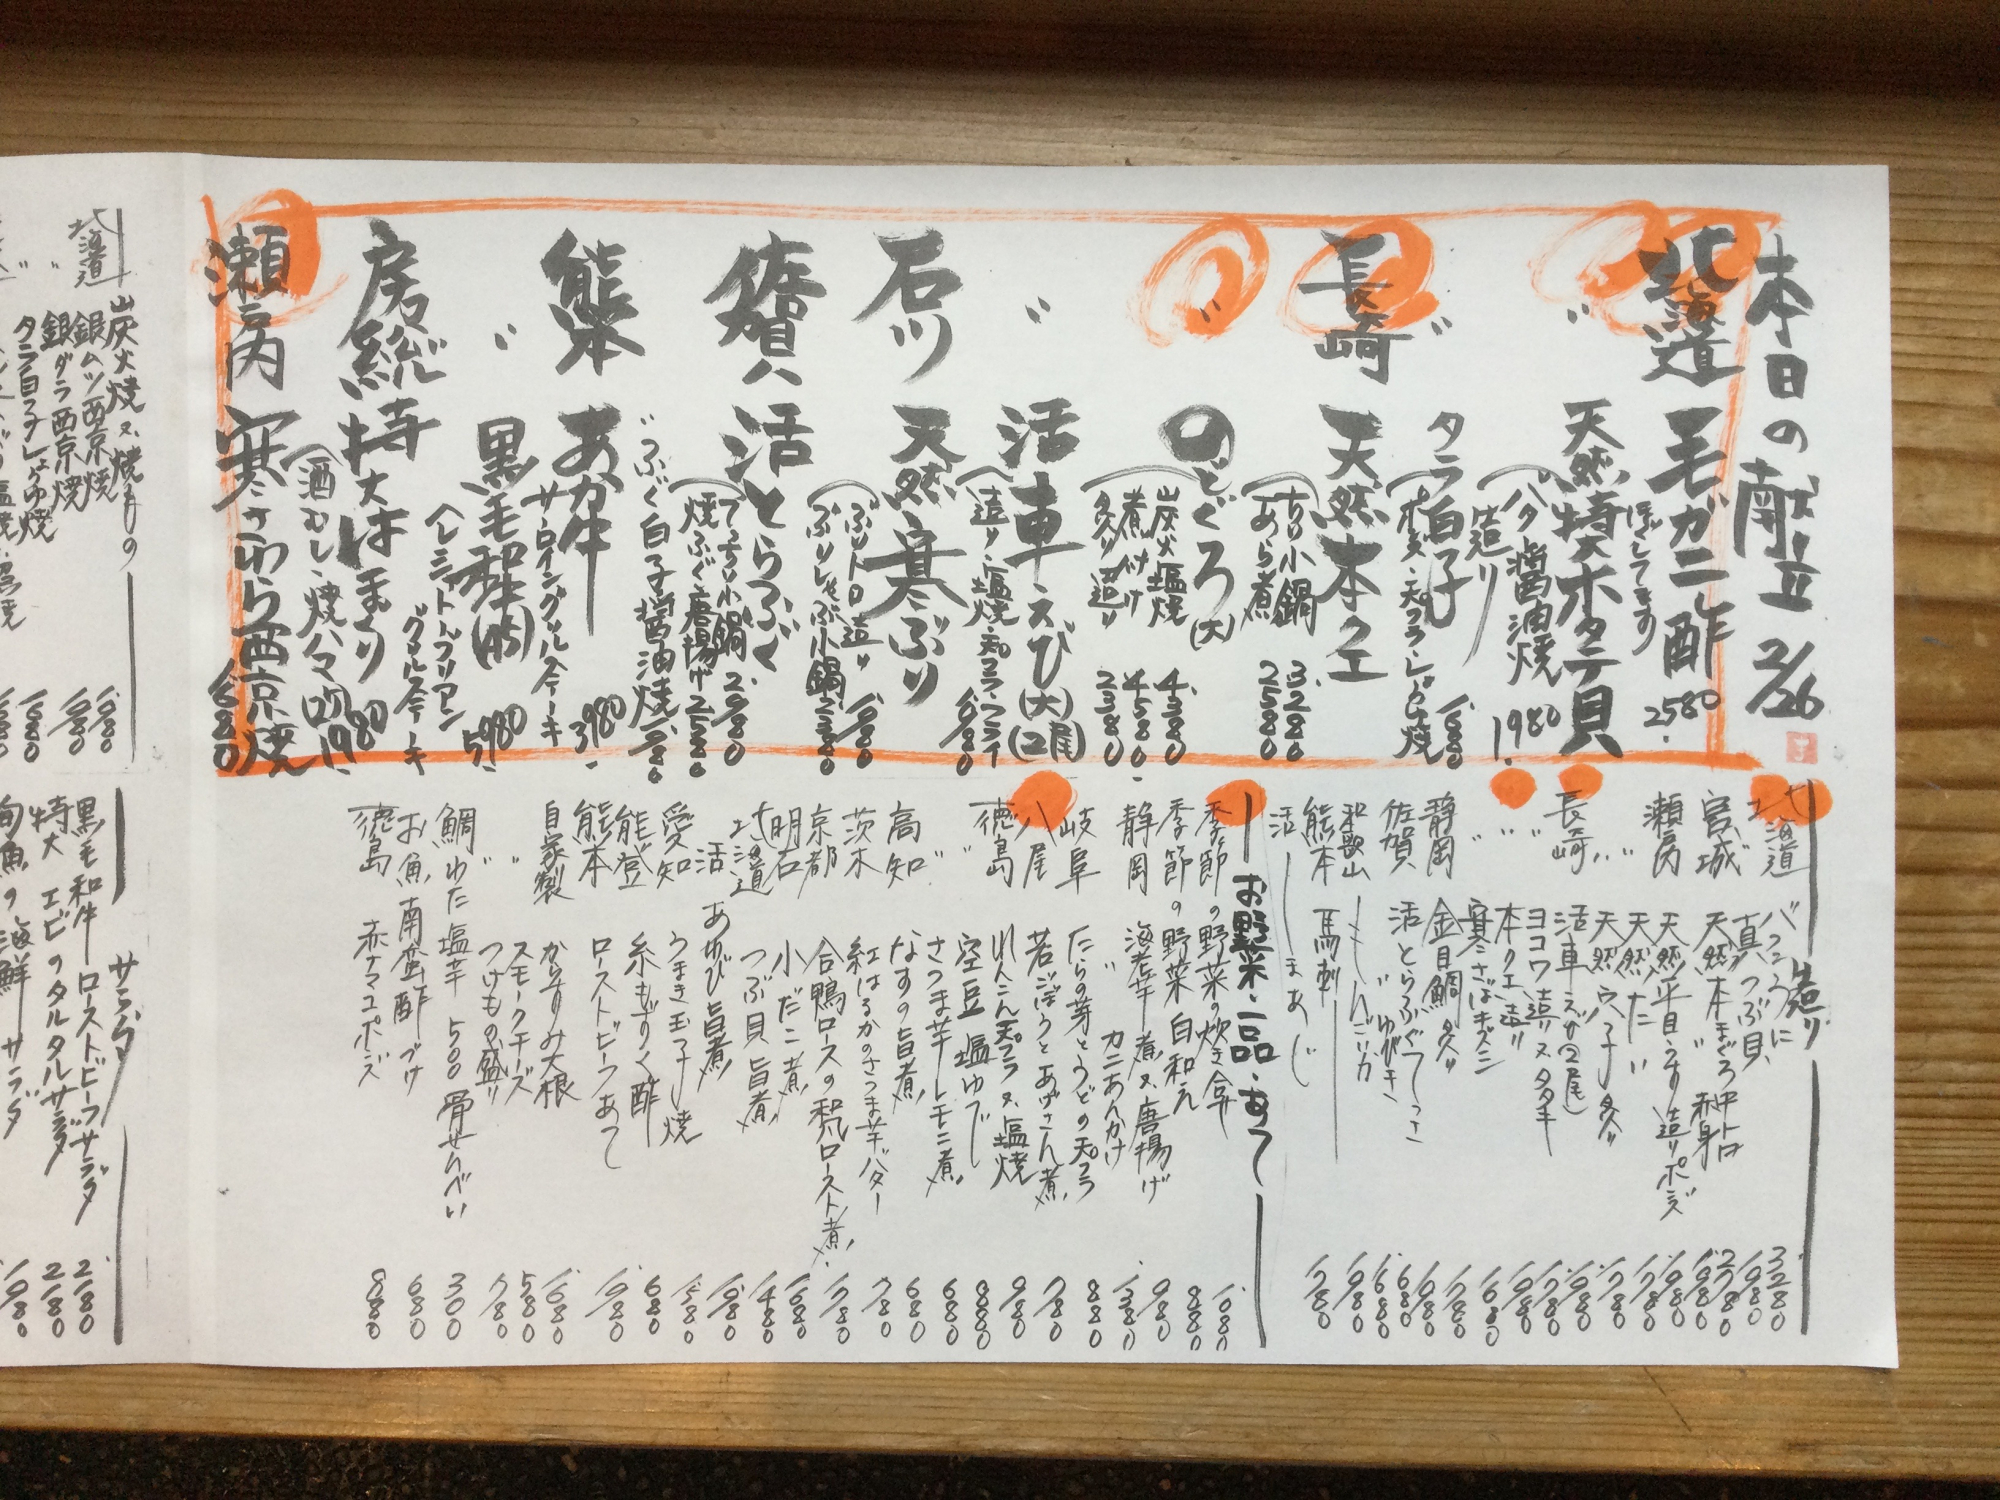 本日の献立 2/26
北海道 毛ガニ酢 2580
ほぐしてます
〃 天然特大ホタテ貝
造り
バター醤油焼 1980
〃 タラ白子 1680
ポン酢・天プラ・しょうゆ焼
長崎 天然本クエ
ちり小鍋 3280
あら煮 2580
〃 のどぐろ(大)
炭火塩焼 4380
煮付け 4580
炙り造り 2380
〃 活車えび(大)(2尾)
造り・塩焼・天プラ・フライ 1980
石川 天然寒ぶり
ぶりトロ造り 1980
ぶりしゃぶ小鍋 2380
佐賀 活とらふぐ
てっちり小鍋 2980
焼ふぐ・唐揚げ 2580
〃 ふぐ白子醤油焼 1980
熊本 あか牛
サーロイングリルステーキ 3980
〃 黒毛和牛(A5)
ヘレシャトーブリアン
グリルステーキ 5980
房総 特大はまぐり
酒むし・焼ハマ(2ケ) 1980
瀬戸内 寒さわら西京焼 1680
造り
北海道 バフンうに 3280
真つぶ貝 1980
宮城 天然本まぐろ 中トロ 2780
〃 赤身 1980
瀬戸内 天然平目うす造りポン酢 1980
〃 天然たい 1780
〃 天然穴子炙り 1780
長崎 活車えび(2尾) 1980
〃 ヨコワ造り又タタキ 1780
〃 本クエ造り 1980
〃 寒さばキズシ 1680
静岡 金目鯛炙り 1780
佐賀 活とらふぐてっさ 1980
〃 ゆびき 680
和歌山 しんこいか 1680
熊本 馬刺 1980
活 まあじ 1780
お野菜・一品・あて
季節の野菜の炊き合せ 1080
季節の野菜白和え 880
静岡 海老芋煮又唐揚げ 980
〃 カニあんかけ 1380
岐阜 たらの芽とうどの天プラ 880
八尾 若ごぼうとあげさん煮 780
徳島 れんこん天プラ又塩焼 980
〃 空豆塩ゆで 880
〃 さつま芋レモン煮 680
高知 なすの旨煮 680
茨木 紅はるかのさつま芋バター 780
京都 合鴨ロースの和ロースト煮 1780
明石 小だこ煮 1680
北海道 つぶ貝旨煮 1480
活 あわび旨煮 1980
愛知 うまき玉子焼 1580
能登 糸もずく酢 680
熊本 ローストビーフあて 1980
自家製 からすみ大根 1680
〃 スモークチーズ 580
〃 つけもの盛り 780
鯛わた塩辛 500 骨せんべい 300
お魚南蛮酢づけ 680
徳島 赤ナマコポン酢 880
炭火焼又焼もの
北海道 銀ムツ西京焼
〃 銀ダラ西京焼
タラ白子しょうゆ焼
サラダ
黒毛和牛ローストビーフサラダ 2180
特大エビのタルタルサラダ 2180
旬魚の海鮮サラダ 1980